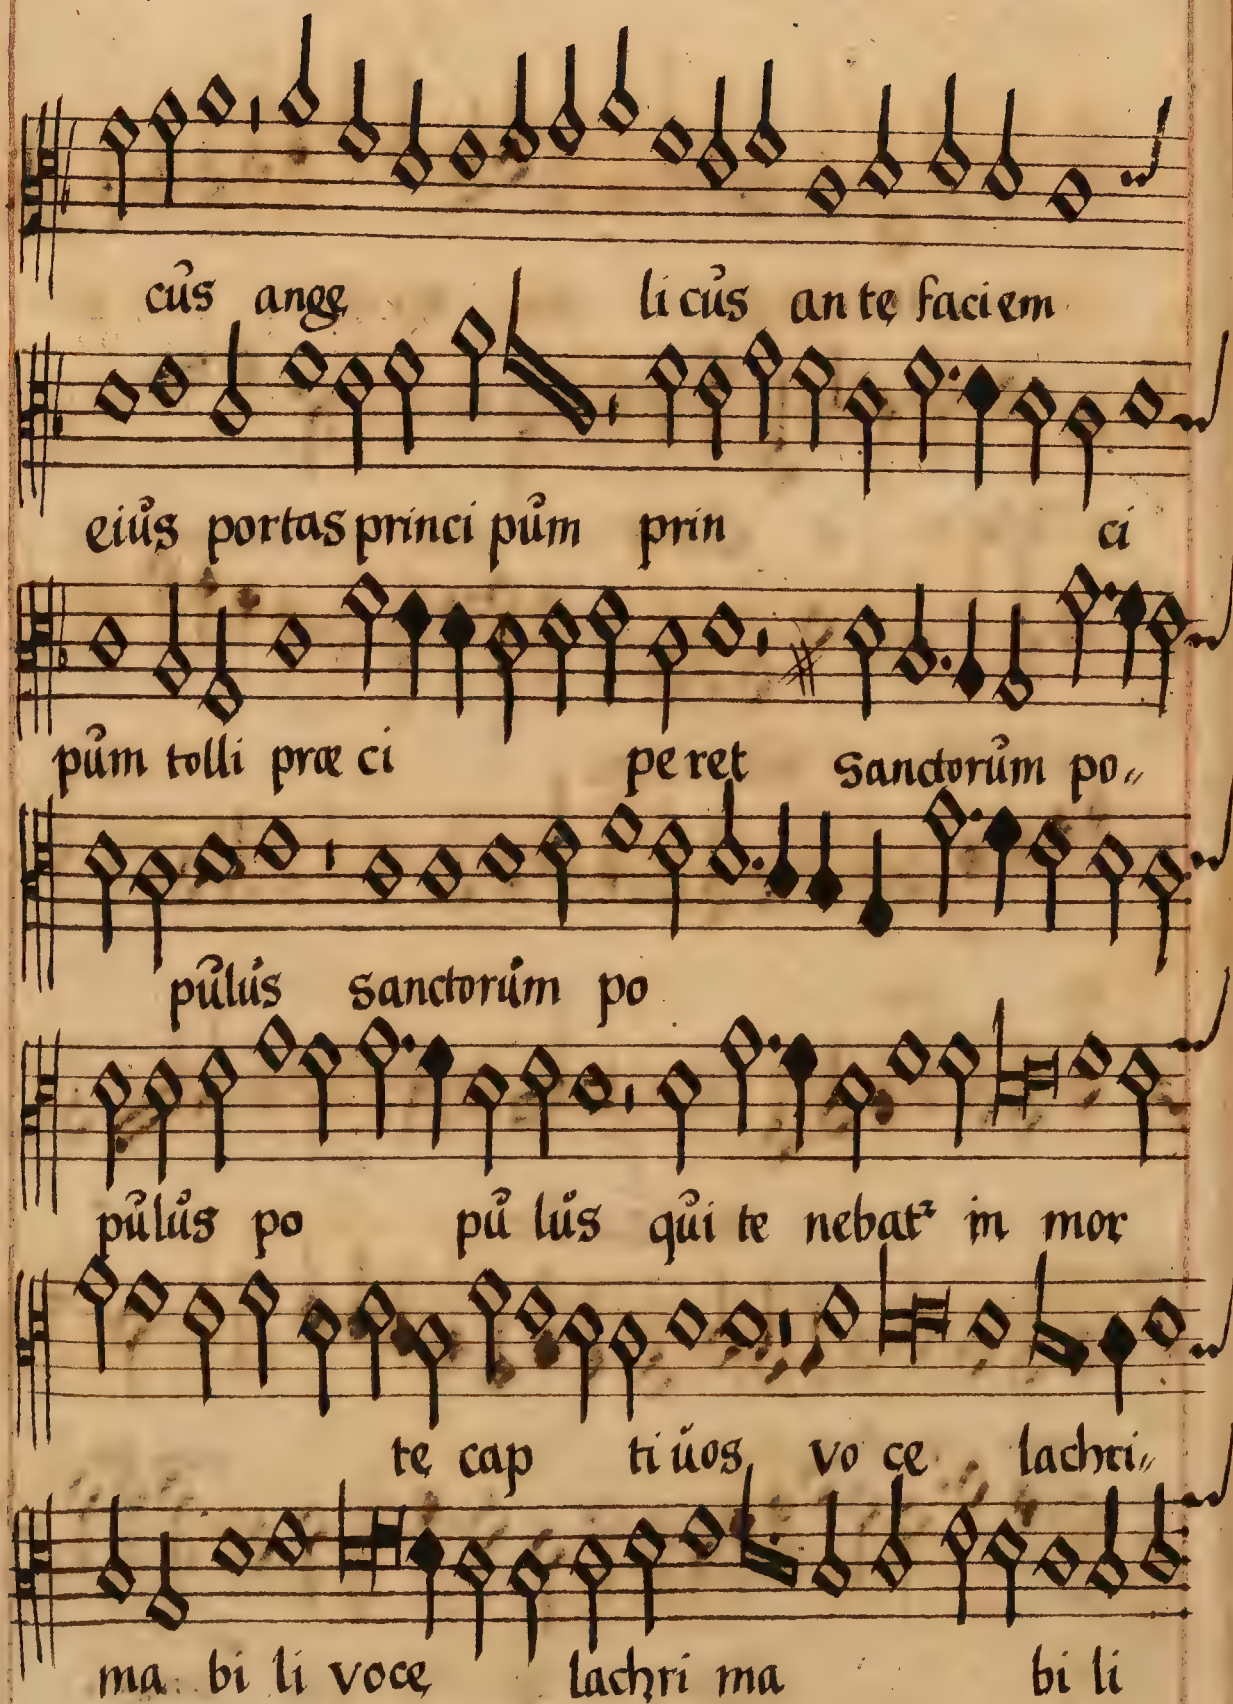 cus ange li cus an te faciem
eius portas princi pum prin ci
pum tolli præ ci pe ret sanctorum po„
pulus sanctorum po
pulus po pu lus qui te nebat² in mor
te cap ti uos vo ce lachri„
ma bi li voce lachri ma bi li